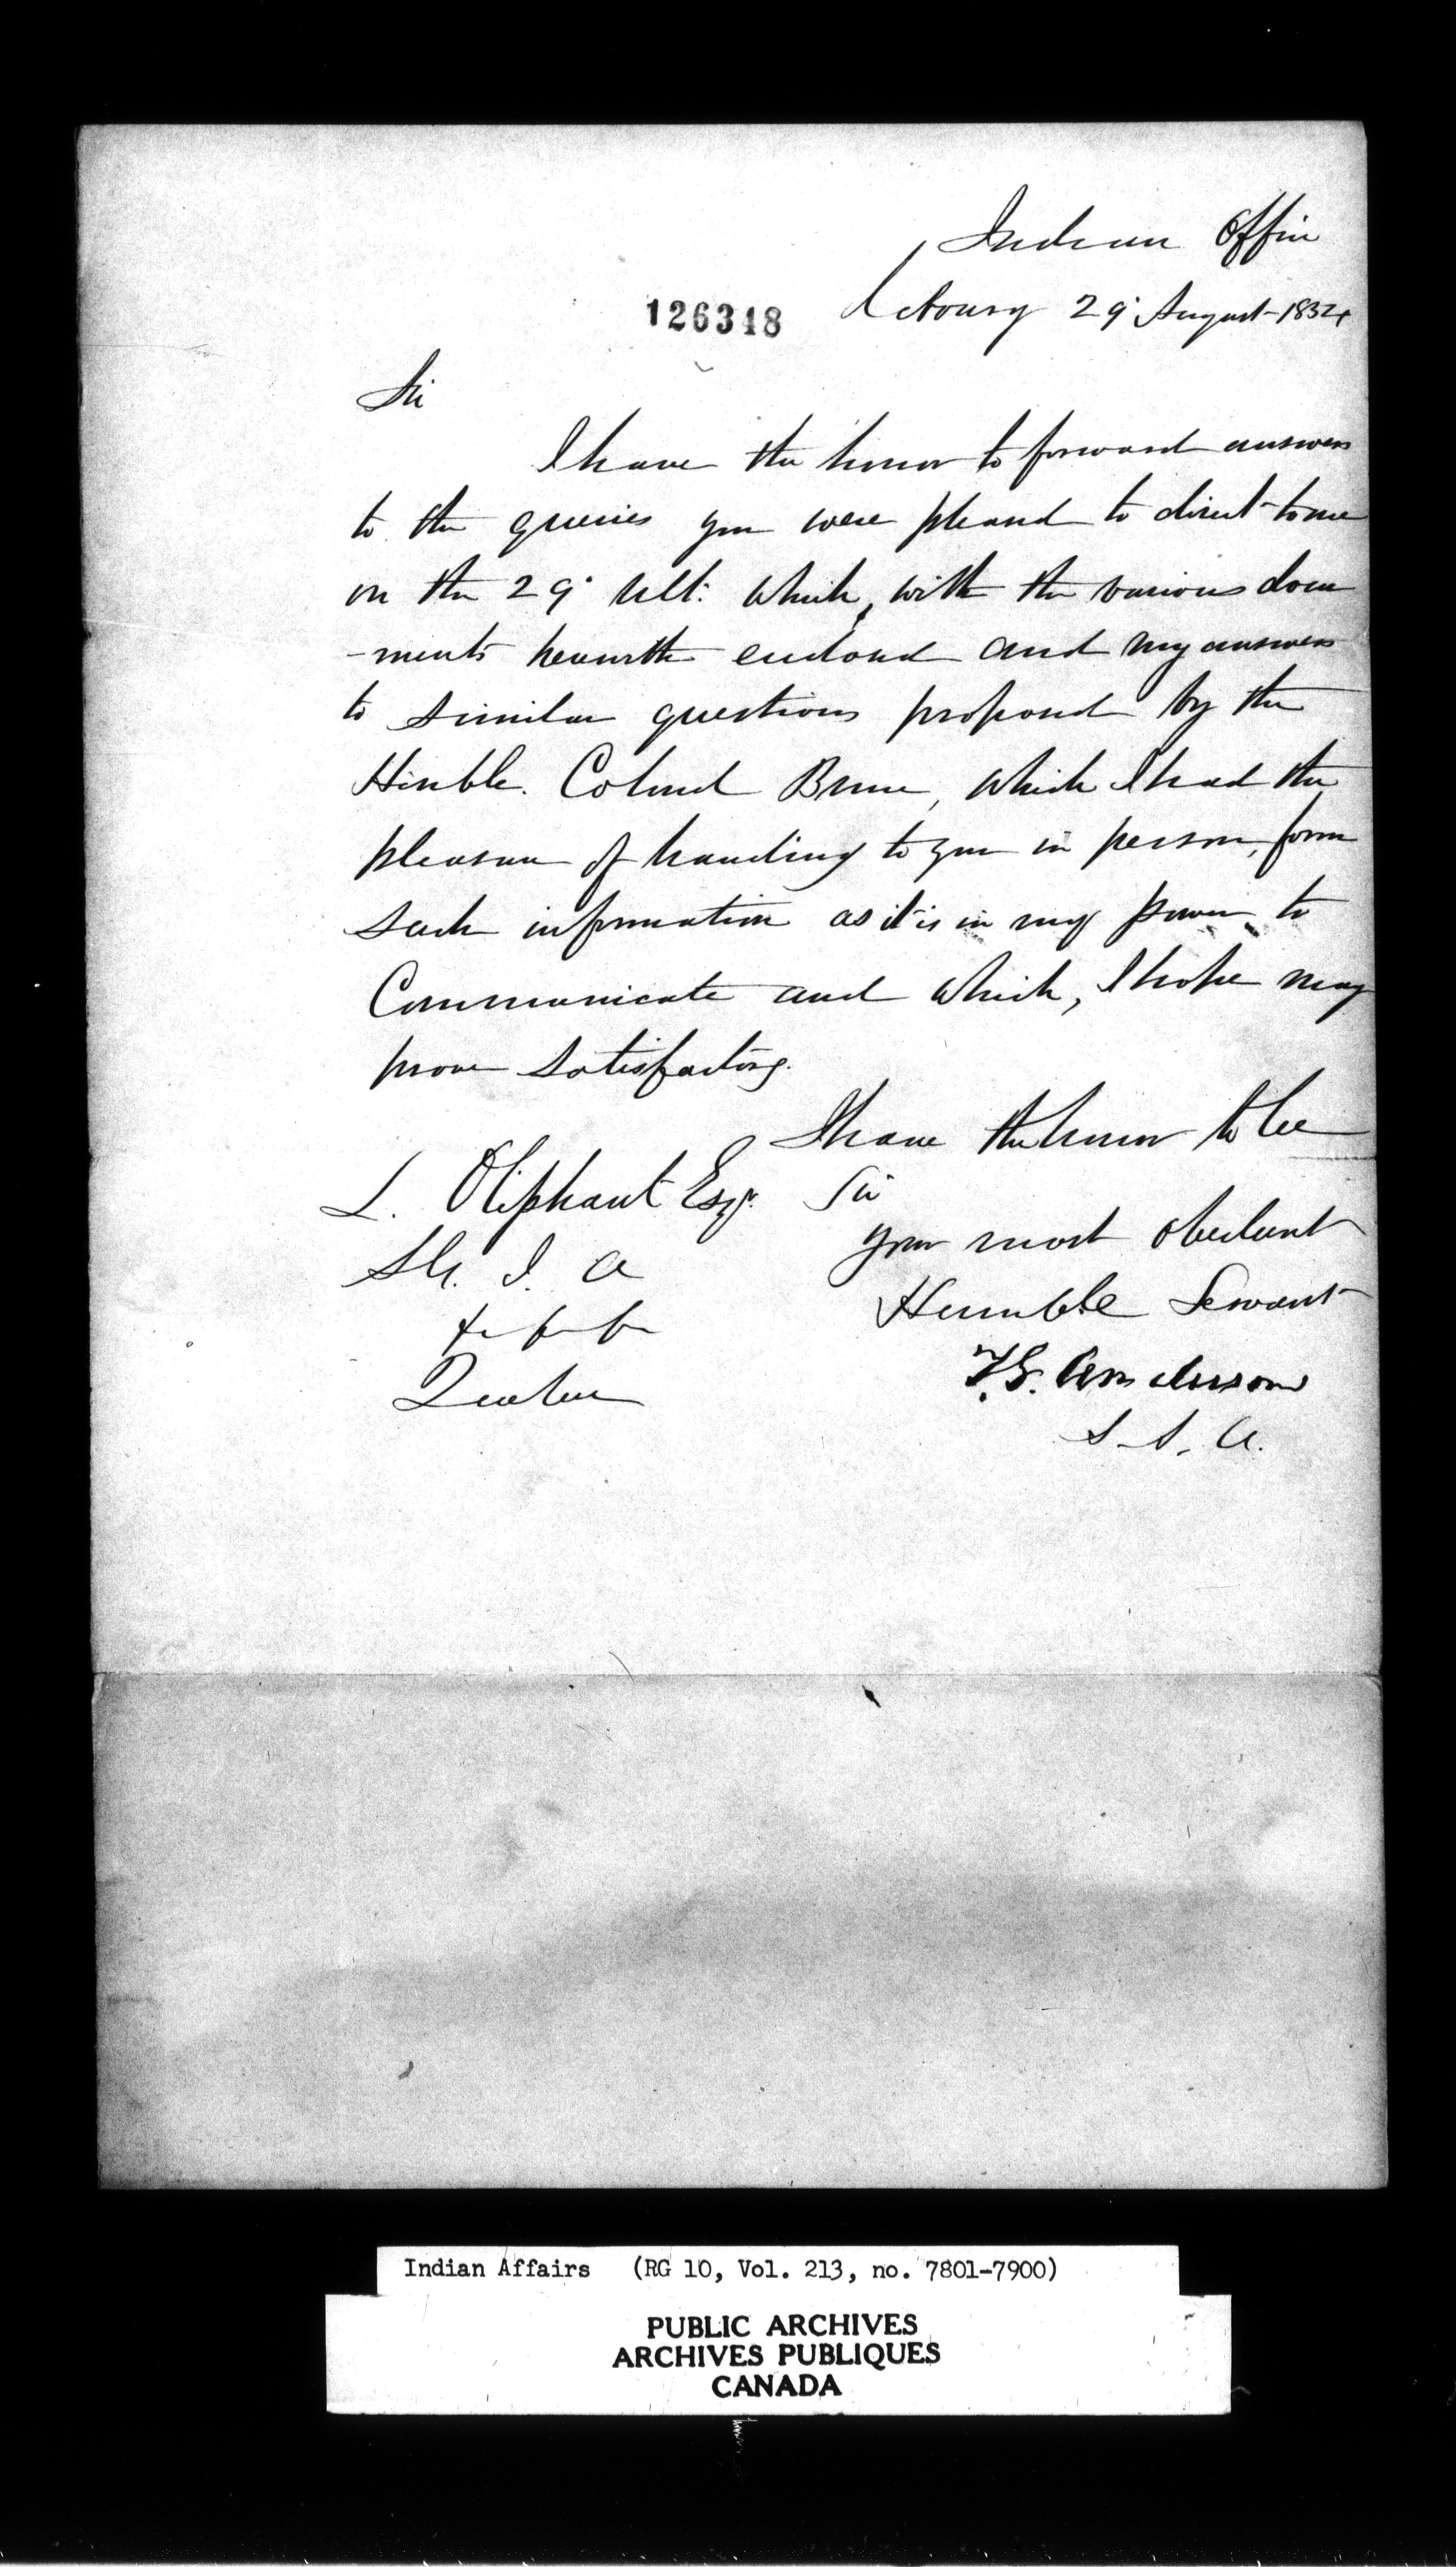 Indian Office
126318
Cobourg 29 August 1854
Sir
I have the honor to forward answers
to the queries you were pleased to direct to me
on the 29 Ult: which, with the various docu
-ments herewith enclosed and my answers
to similar questions proposed by the
Honble. Colonel Bruce, which I had the
pleasure of handing to you in person, form
such information as it is in my power to
Communicate and which, I hope may
prove satisfactory.
I have the honor to be
Sir
your most obedient
Humble Servant
T. G. Anderson
S. I. A.
L. Oliphant Esqr.
S. G. I. A
&c &c &c
Quebec
Indian Affairs (RG 10, Vol. 213, no. 7801-7900)
PUBLIC ARCHIVES
ARCHIVES PUBLIQUES
CANADA